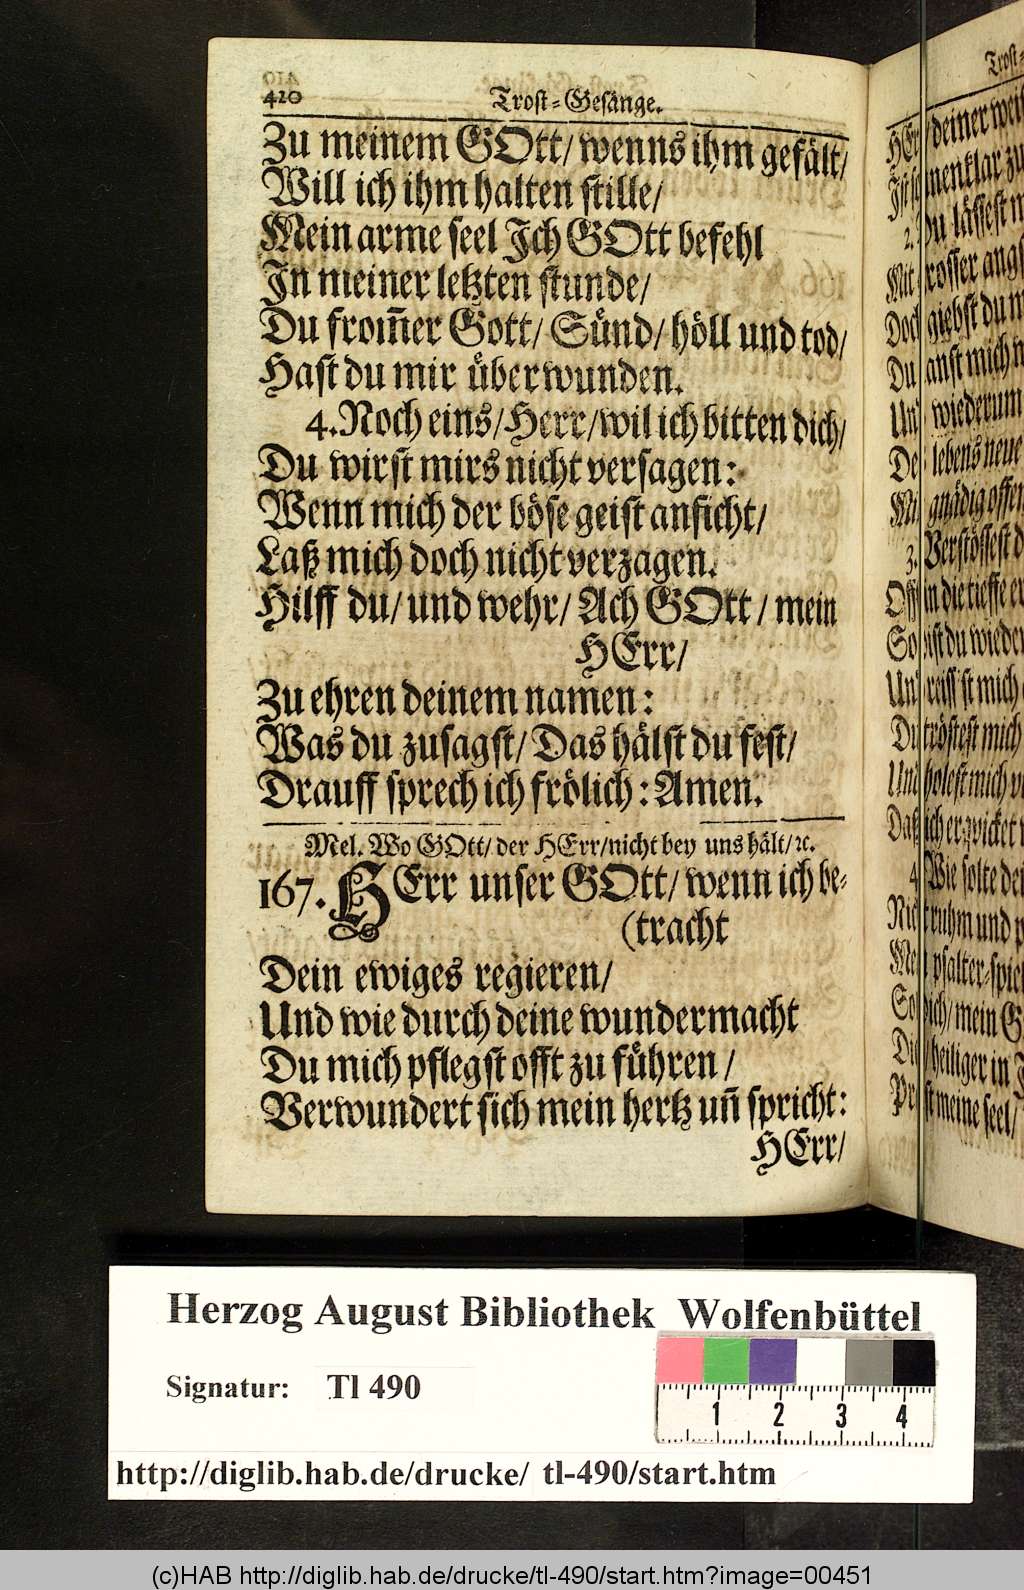 420
Trost-Gesänge.
Zu meinem GOtt/ wenns ihm gefält/
Will ich ihm halten stille/
Mein arme seel Jch GOtt befehl
Jn meiner letzten stunde/
Du from̃er Gott/ Sünd/ höll und tod/
Hast du mir überwunden.
4. Noch eins/ Herr/ wil ich bitten dich/
Du wirst mirs nicht versagen:
Wenn mich der böse geist anficht/
Laß mich doch nicht verzagen.
Hilff du/ und wehr/ Ach GOtt/ mein
HErr/
Zu ehren deinem namen:
Was du zusagst/ Das hälst du fest/
Drauff sprech ich frölich: Amen.
Mel. Wo GOtt/ der HErr/ nicht bey uns hält/ ꝛc.
167. HErr unser GOtt/ wenn ich be-
(tracht
Dein ewiges regieren/
Und wie durch deine wundermacht
Du mich pflegst offt zu führen/
Verwundert sich mein hertz uñ spricht:
HErr/
Trost-
deiner
2.
du lässest
Mit
Doch giebst du
Du
wiederum
De lebens neue
gnädig
3. Verstössest
in die tieffe
So
du wieder
mich
Du tröstest mich
Und holest mich
Daß ich erqvicket
4. Wie solte
ruhm und
psalter-spiel
So mein
heiliger in
meine seel/
Herzog August Bibliothek Wolfenbüttel
Signatur: Tl 490
1 2 3 4
http://diglib.hab.de/drucke/ tl-490/start.htm
(c)HAB http://diglib.hab.de/drucke/tl-490/start.htm?image=00451